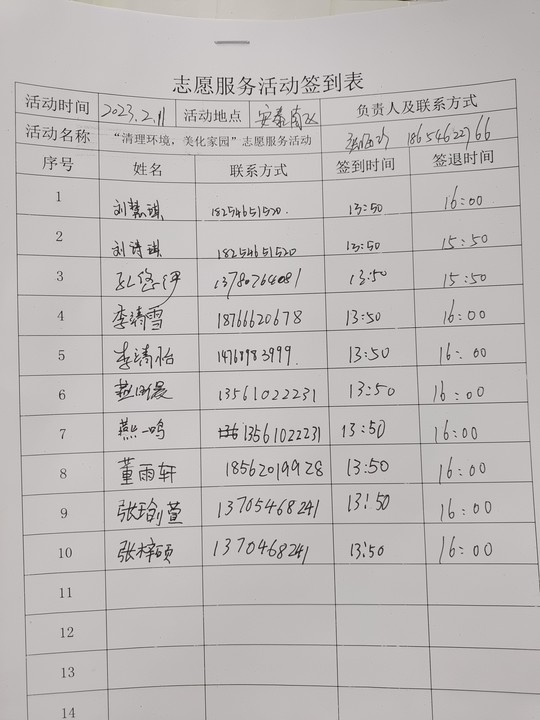 志愿服务活动签到表
活动时间 2023.2.11 活动地点 安泰南区 负责人及联系方式
活动名称 “清理环境，美化家园”志愿服务活动 18654622766
序号 姓名 联系方式 签到时间 签退时间
1 刘慧琪 18254651520. 13:50 16:00
2 刘诗琪 18254651520 13:50 15:50
3 13780764081 13:50 15:50
4 李清雪 18766620678 13:50 16:00
5 李清怡 14768983999. 13:50 16:00
6 13561022231 13:50 16:00
7 燕一鸣 13561022231 13:50 16:00
8 董雨轩 18562019928 13:50 16:00
9 张瑜萱 13705468241 13:50 16:00
10 张梓硕 1370468241 13:50 16:00
11
12
13
14